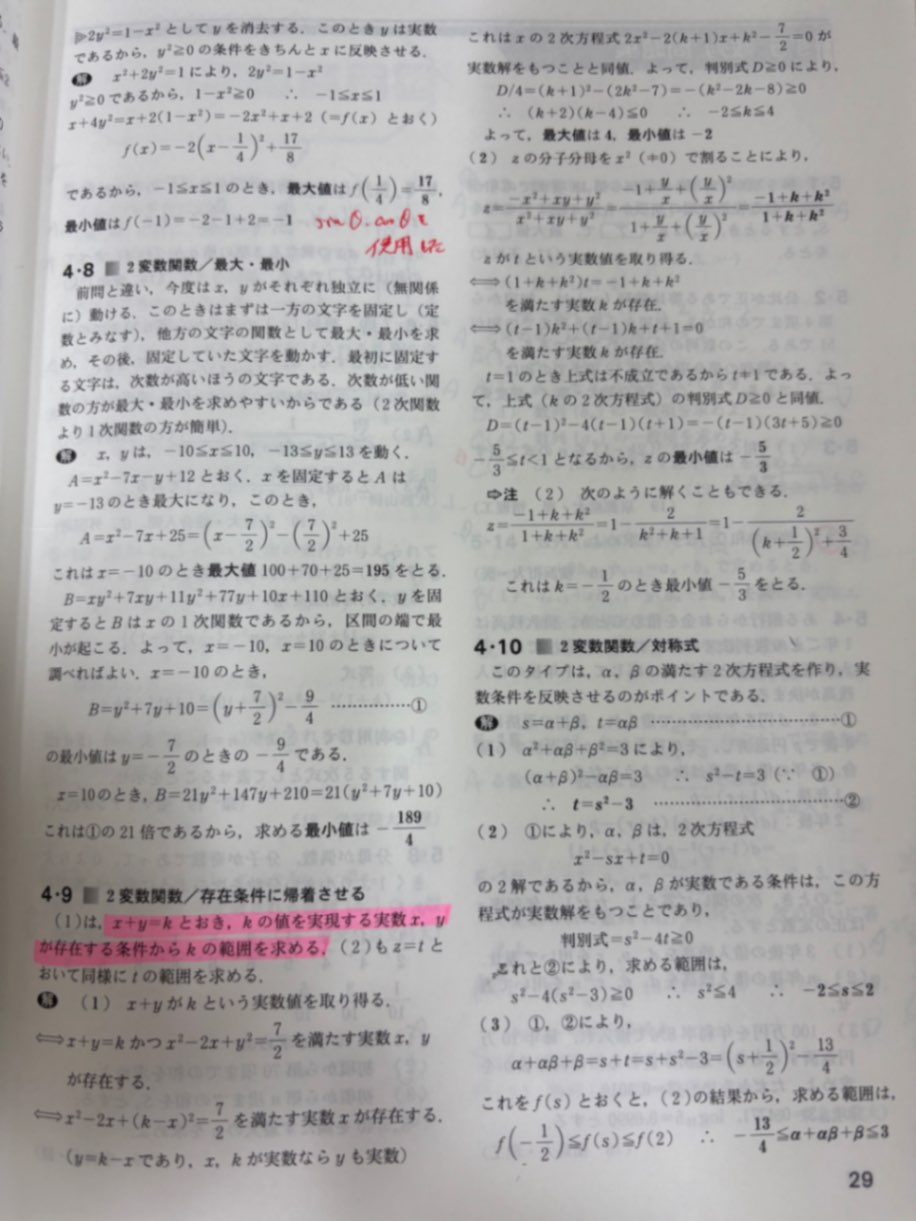 ▷2y²=1−x² としてyを消去する．このときyは実数
であるから，y²≧0の条件をきちんとxに反映させる．
解 x²+2y²=1により，2y²=1−x²
y²≧0であるから，1−x²≧0 ∴ −1≦x≦1
x+4y²=x+2(1−x²)=−2x²+x+2 (=f(x) とおく)
f(x)=−2(x−1/4)²+17/8
であるから，−1≦x≦1のとき，最大値は f(1/4)=17/8，
最小値は f(−1)=−2−1+2=−1
sinθ. cosθを
使用した
4・8 2変数関数／最大・最小
前問と違い，今度はx，yがそれぞれ独立に（無関係
に）動ける．このときはまずは一方の文字を固定し（定
数とみなす），他方の文字の関数として最大・最小を求
め，その後，固定していた文字を動かす．最初に固定す
る文字は，次数が高いほうの文字である．次数が低い関
数の方が最大・最小を求めやすいからである（2次関数
より1次関数の方が簡単）．
解 x，yは，−10≦x≦10，−13≦y≦13を動く．
A=x²−7x−y+12とおく．xを固定するとAは
y=−13のとき最大になり，このとき，
A=x²−7x+25=(x−7/2)²−(7/2)²+25
これはx=−10のとき最大値100+70+25=195をとる．
B=xy²+7xy+11y²+77y+10x+110とおく．yを固
定するとBはxの1次関数であるから，区間の端で最
小が起こる．よって，x=−10，x=10のときについて
調べればよい．x=−10のとき，
B=y²+7y+10=(y+7/2)²−9/4 ……………①
の最小値はy=−7/2のときの−9/4である．
x=10のとき，B=21y²+147y+210=21(y²+7y+10)
これは①の21倍であるから，求める最小値は −189/4
4・9 2変数関数／存在条件に帰着させる
(1)は，x+y=kとおき，kの値を実現する実数x，y
が存在する条件からkの範囲を求める．(2)もz=tと
おいて同様にtの範囲を求める．
解 (1) x+yがkという実数値を取り得る．
⟺x+y=kかつx²−2x+y²=7/2を満たす実数x，y
が存在する．
⟺x²−2x+(k−x)²=7/2を満たす実数xが存在する．
(y=k−xであり，x，kが実数ならyも実数)
これはxの2次方程式2x²−2(k+1)x+k²−7/2=0が
実数解をもつことと同値．よって，判別式D≧0により，
D/4=(k+1)²−(2k²−7)=−(k²−2k−8)≧0
∴ (k+2)(k−4)≦0 ∴ −2≦k≦4
よって，最大値は4，最小値は−2
(2) zの分子分母をx²(≠0)で割ることにより，
z=(−x²+xy+y²)/(x²+xy+y²)=(−1+y/x+(y/x)²)/(1+y/x+(y/x)²)=(−1+k+k²)/(1+k+k²)
zがtという実数値を取り得る．
⟺(1+k+k²)t=−1+k+k²
を満たす実数kが存在．
⟺(t−1)k²+(t−1)k+t+1=0
を満たす実数kが存在．
t=1のとき上式は不成立であるからt≠1である．よっ
て，上式（kの2次方程式）の判別式D≧0と同値．
D=(t−1)²−4(t−1)(t+1)=−(t−1)(3t+5)≧0
−5/3≦t<1となるから，zの最小値は −5/3
⇨注 (2) 次のように解くこともできる．
z=(−1+k+k²)/(1+k+k²)=1−2/(k²+k+1)=1−2/((k+1/2)²+3/4)
これはk=−1/2のとき最小値 −5/3をとる．
4・10 2変数関数／対称式
このタイプは，α，βの満たす2次方程式を作り，実
数条件を反映させるのがポイントである．
解 s=α+β，t=αβ ……………………………①
(1) α²+αβ+β²=3により，
(α+β)²−αβ=3 ∴ s²−t=3 (∵ ①)
∴ t=s²−3 ……………………………②
(2) ①により，α，βは，2次方程式
x²−sx+t=0
の2解であるから，α，βが実数である条件は，この方
程式が実数解をもつことであり，
判別式=s²−4t≧0
これと②により，求める範囲は，
s²−4(s²−3)≧0 ∴ s²≦4 ∴ −2≦s≦2
(3) ①，②により，
α+αβ+β=s+t=s+s²−3=(s+1/2)²−13/4
これをf(s)とおくと，(2)の結果から，求める範囲は，
f(−1/2)≦f(s)≦f(2) ∴ −13/4≦α+αβ+β≦3
29